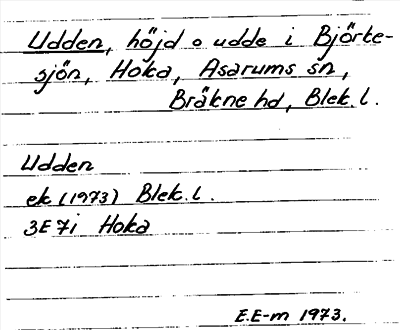 Udden, höjd o udde i Björke-
sjön, Hoka, Asarums sn,
Bräkne hd, Blek. l.
Udden
ek (1973) Blek. l.
3E7i Hoka
E.E-m 1973.